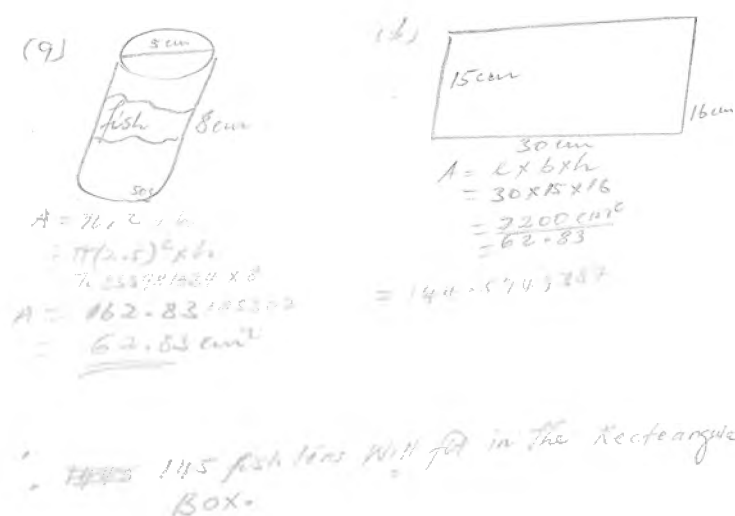 (a)
5cm
fish
8cm
50g
A = π r 2 × h
= π(2.5)² × h
× 8
A = 162.83
= 62.83 cm²
(b)
15cm
16cm
30cm
A = l × b × h
= 30 × 15 × 16
= 7200 cm²
= 62.83
= 144.5943387
∴ 145 fish tens will fit in the Recteangular
BOX.